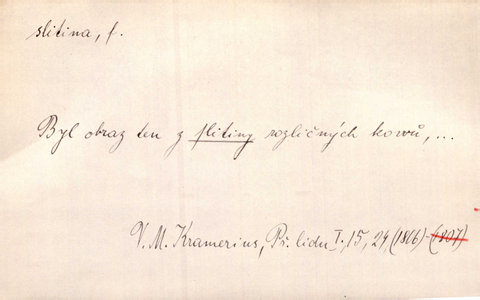 slitina, f.
Byl obraz ten z slitiny rozličných kovů,...
V. M. Kramerius, Př. lidu I., 15, 24 (1866) (1807)